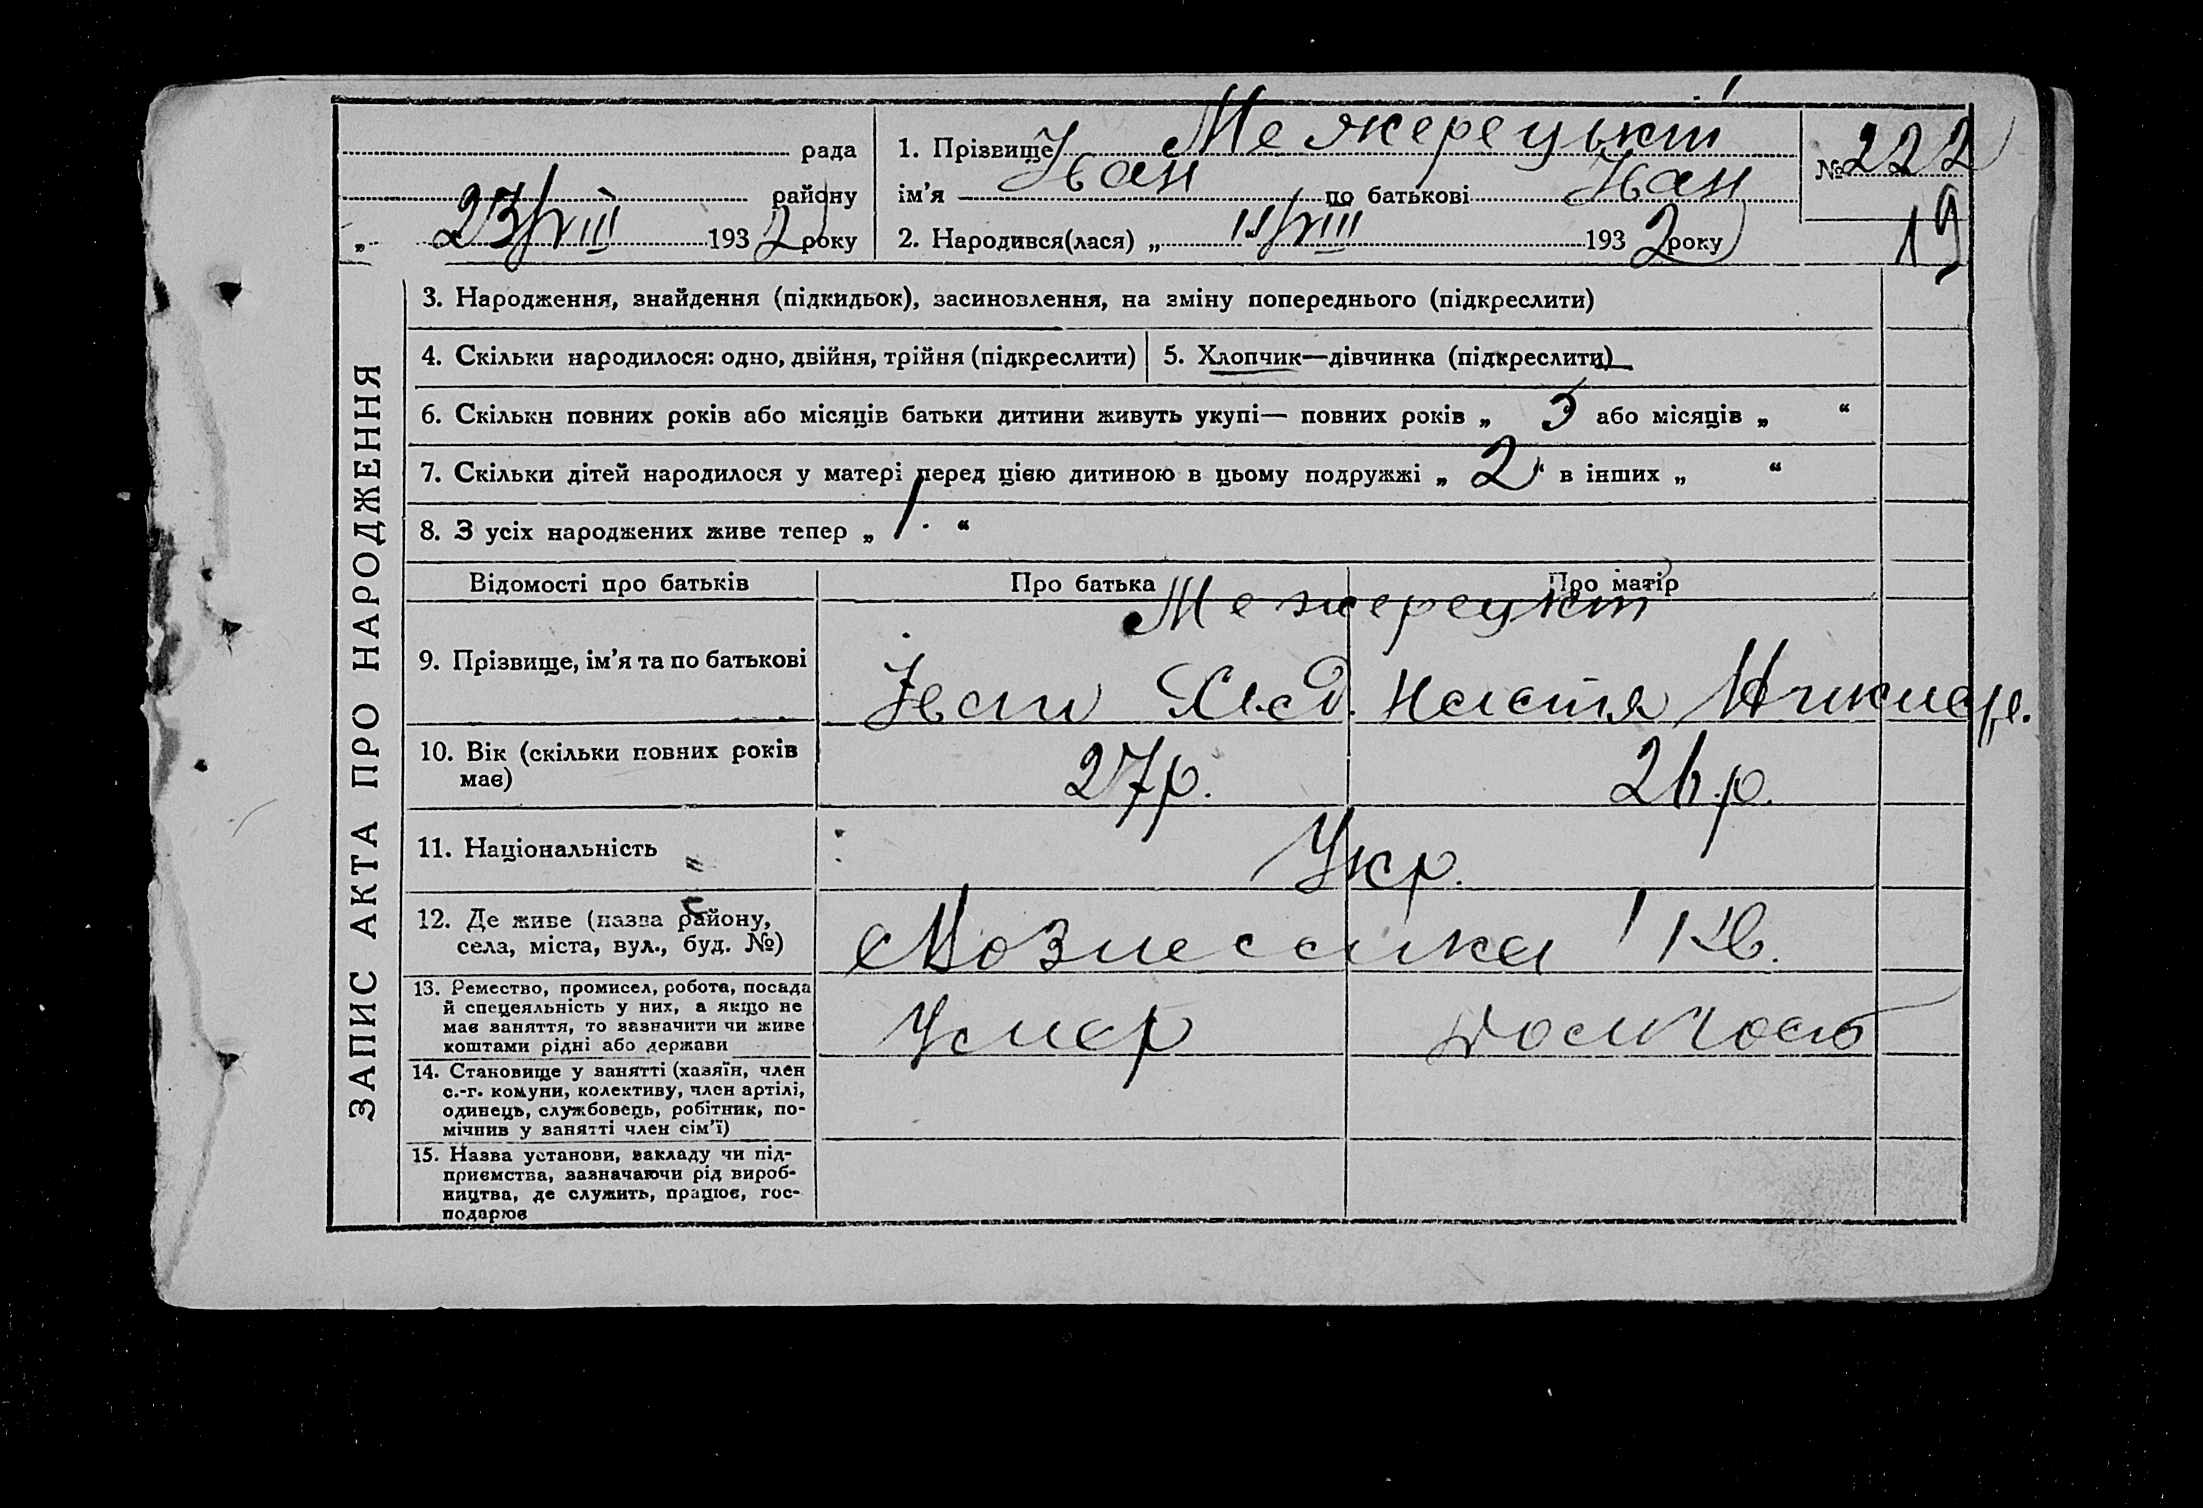 рада
району
„ 23/VIII 1932 року
1. Прізвище Межерецький
ім’я Иван по батькові Иван
2. Народився(лася) „ 11/VIII 1932 року
№ 222
19
ЗАПИС АКТА ПРО НАРОДЖЕННЯ
3. Народження, знайдення (підкидьок), засиновлення, на зміну попереднього (підкреслити)
4. Скільки народилося: одно, двійня, трійня (підкреслити)
5. Хлопчик—дівчинка (підкреслити)
6. Скільки повних років або місяців батьки дитини живуть укупі— повних років „ 3 або місяців „ “
7. Скільки дітей народилося у матері перед цією дитиною в цьому подружжі „ 2 “ в інших „ “
8. З усіх народжених живе тепер „ 1 “
Відомості про батьків Про батька Про матір
Межерецкий
9. Прізвище, ім’я та по батькові Іван Настя
10. Вік (скільки повних років
має) 27 р. 26 р.
11. Національність Укр.
12. Де живе (назва району,
села, міста, вул., буд. №) Вознесенка
13. Ремество, промисел, робота, посада
й спецеяльність у них, а якщо не
має заняття, то зазначити чи живе
коштами рідні або держави
14. Становище у занятті (хазяїн, член
с.-г. комуни, колективу, член артілі,
одинець, службовець, робітник, по-
мічнив у занятті член сім’ї)
15. Назва установи, закладу чи під-
приємства, зазначаючи рід вироб-
ництва, де служить, працює, гос-
подарює